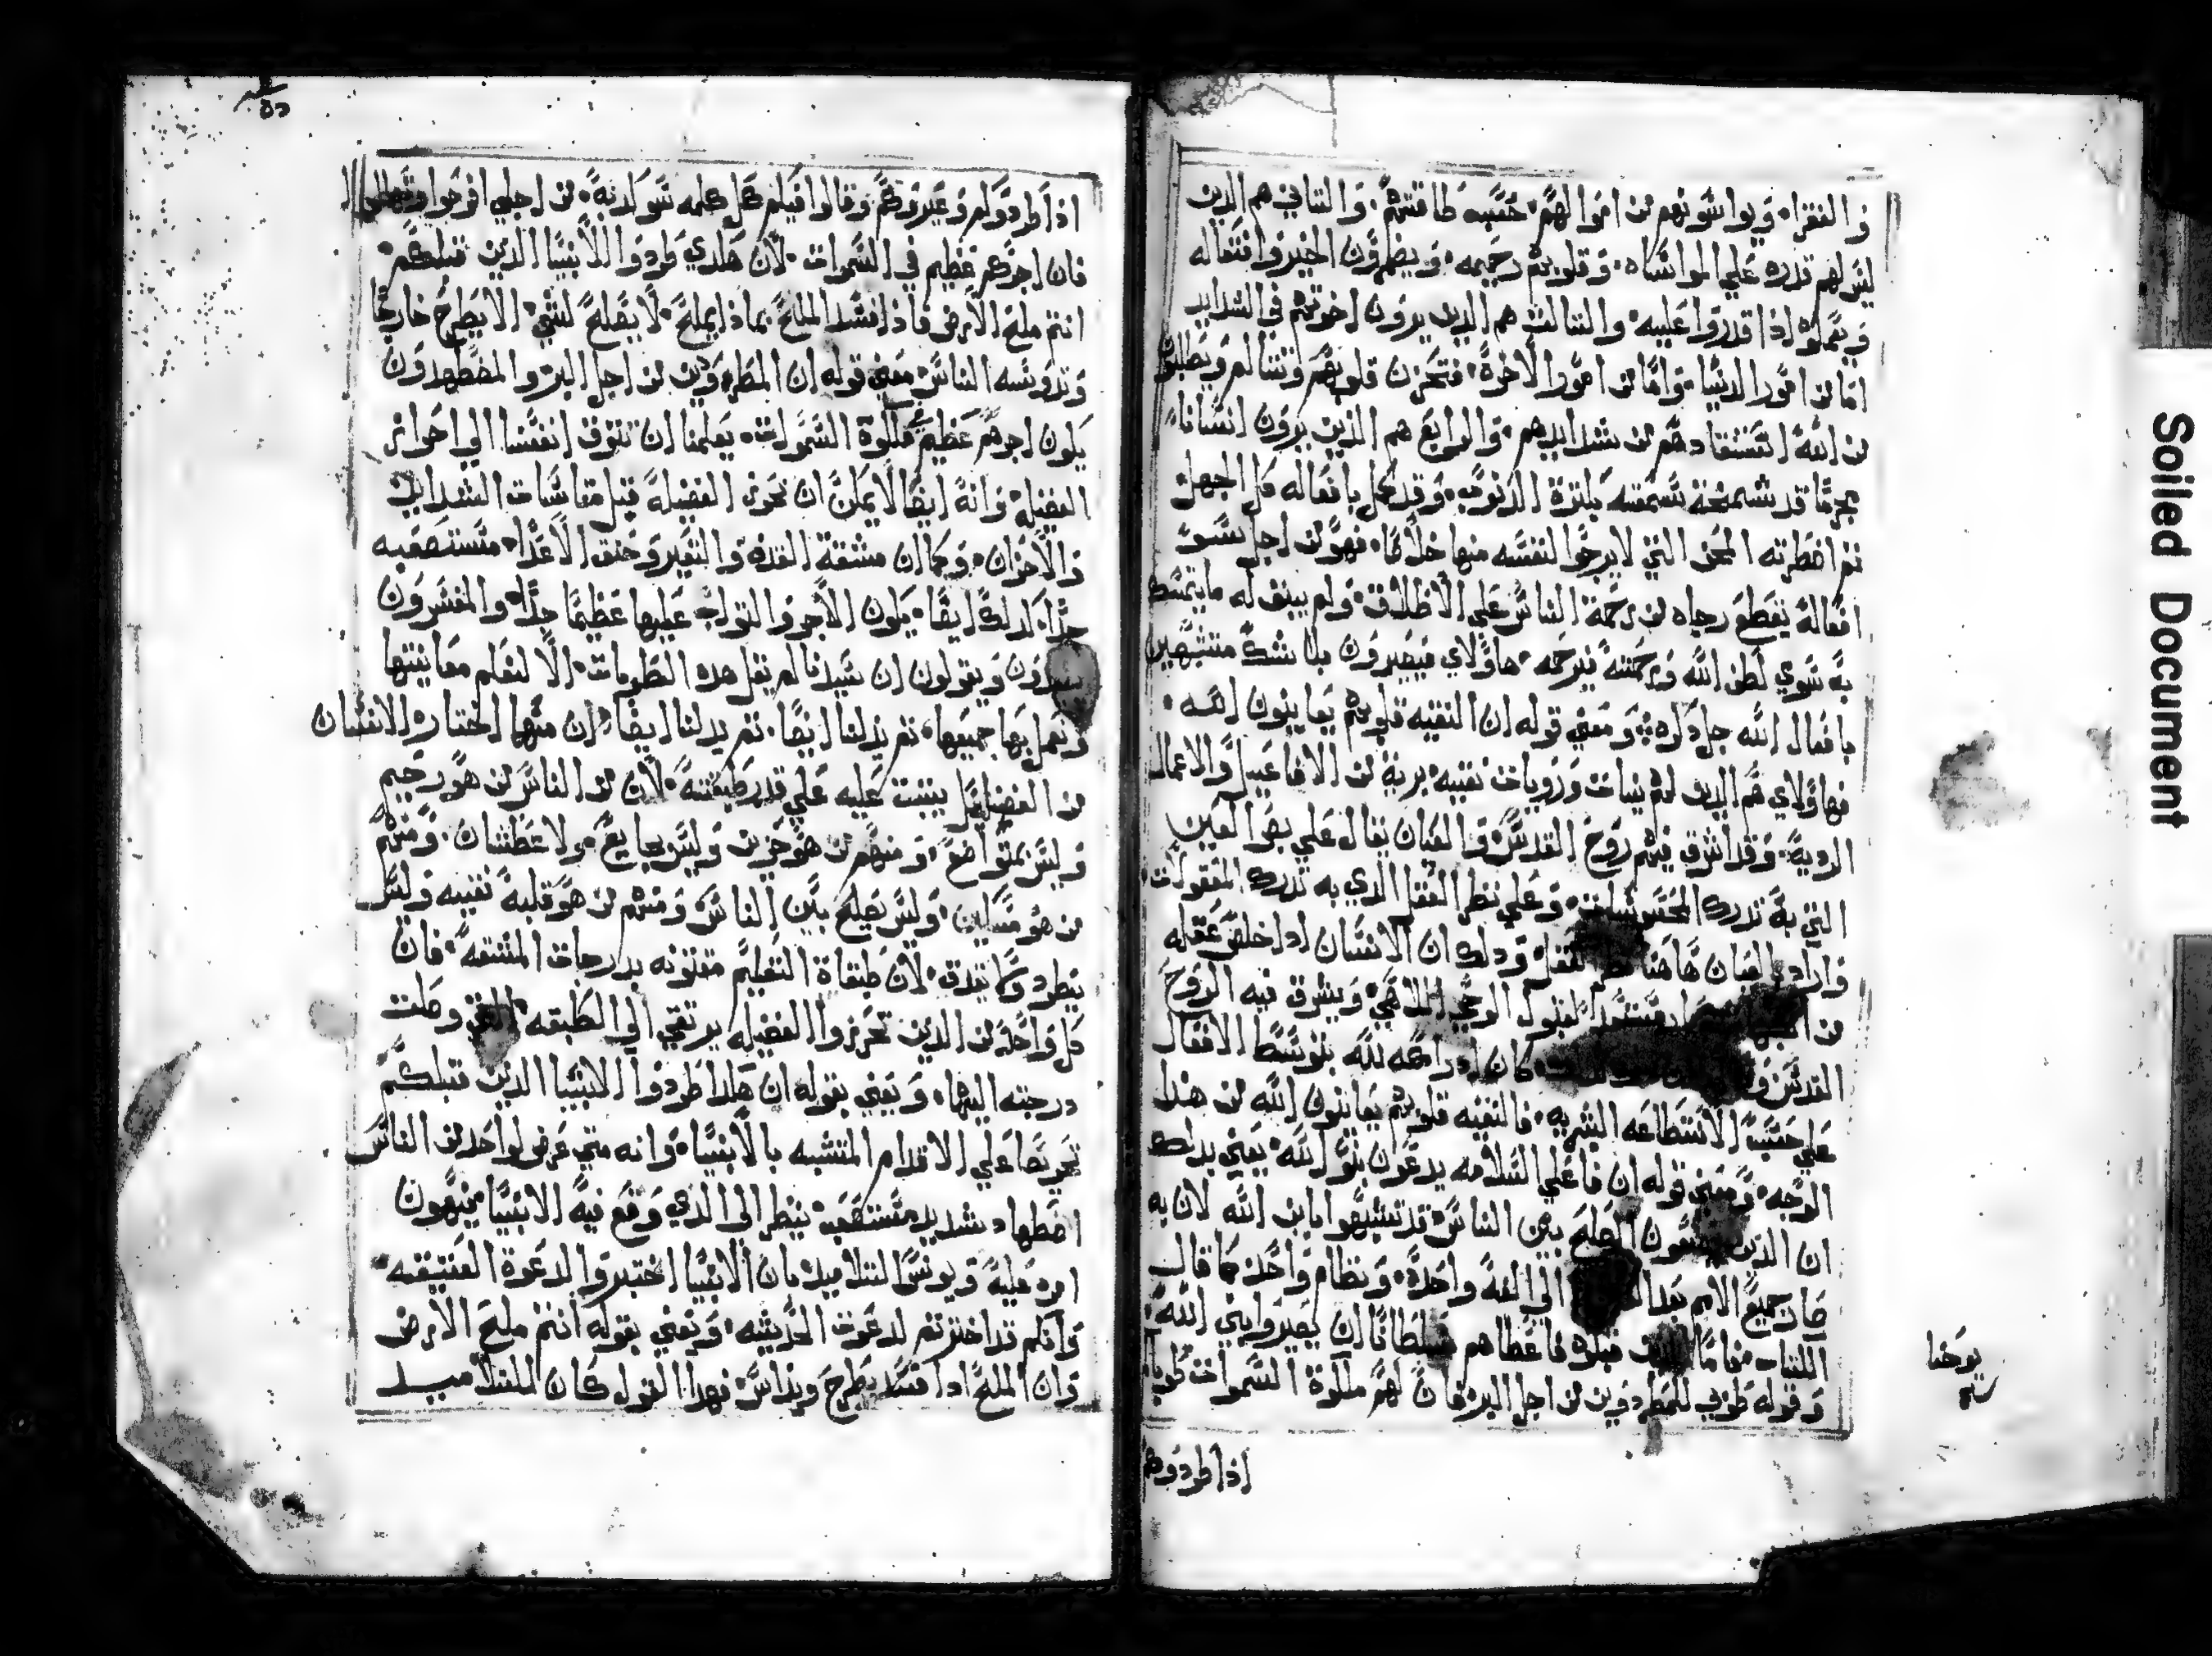 والفقرا، ويواسونهم من اموالهم، حسب طاقتهم، والتاني هم الدين
ليس لهم قدره علي المواساه، وقلوبهم رحيمه، ويضمرون الخير وافتعاله
ويعملوه اذا قدروا عليه، والتالت هم الدين يرون اخوتهم في الشدايد
اما من امور الدنيا، واما من امور الاخرة، فتحزن قلوبهم وتتالم ويطلبون
من الله استنقادهم من شدايدهم، والرابع هم الذين يرون انسانا
مجرما قد سمجته بكترة الدنوب، وقد كل بافعاله كل الجهل
تم اضطرته المحن التي لا يرجوا لنفسه منها خلاصا، فهو من اجل سو
افعاله يقطع رجاه من رحمة الناس علي الاطلاق، ولم يبقف له ما يتمسك
به سوي لطف الله ورحمته فيرحمه، هاولاي فيصيرون بلا شك متشبهين
بافعال الله جل ذكره، ومعني قوله ان النقيه قلوبهم يعاينون الله،
فهاولاي هم الدين لهم نيات ورويات نقيه، بريه من الافاعيل والاعمال
الرديه، وقد اشرق فيهم روح القدس، والعيان يقال علي بصر العين
التي به تدرك المحسوسات، وعلي نظر العقل الدي به تدرك المعقولات
واراد بالعيان هاهنا نظر العقل، ودلك ان الانسان ادا خلص عقله
من لقبول الوحي الالاهي، ويشرق فيه الروح
القدس كان ادراكه لله بتوسط الافعال
علي حسب الاستطاعه البشريه، فالنقيه قلوبهم يعاينون الله من هدا
الوجه، ومعني قوله ان فاعلي السلامه يدعون بنو الله، يعني بدلك
ان الدين الصلح بين الناس، قد تشبهوا بابن الله لان به
صار جميع الامم بعد الي الفة واحدة، ونظام واحد، كما قال
الكتاب، فاما الدين قبلوه فاعطاهم سلطانا ان يصيروا بني الله،
وقوله طوبي للمطرودين من اجل البر، فان لهم ملكوة السموات، طوباكم
اذا طردوكم
يوحنا
اذا طردوكم وعيروكم، وقالوا فيكم كل كلمه سو كادبة، من اجلي افرحوا وتهللوا
فان اجركم عظيم في السموات، لان هكدي طردوا الانبيا الدين قبلكم،
انتم ملح الارض، فاذا فسد الملح بماذا يملح، لا يصلح لشي، الا يطرح خارجا
وتدوسه الناس، معني قوله ان المطرودين من اجل البر، والمضطهدون
يكون اجرهم عظيم في ملكوة السموات، يعلمنا ان تتوق انفسنا الي احراز
الفضيله، وانه ايضا لا يمكن ان نحوز الفضيلة قبل مقاسات الشدايد
والاحزان، وكما ان مشقة القدف والتعير وحنق الاعدا، مستصعبه
جدا، كدلك ايضا، يكون الاجر والتواب عليها عظيما جدا، والمفسرون
ويقولون ان سيدنا لم يقل هده التطوبات، الا لنعلم معانيتها
ونعمل بها جميعها، تم يدلنا ايضا، تم يدلنا ايضا، ان منها اختاره الانسان
من الفضايل يتبت عليه علي قدر طبقته، لان من الناس من هو رحيم
وليس بمتواضع، ومنهم من هو حزين وليس بجايع، ولا عطشان، ومنهم
من هو مسكين، وليس يصلح بين الناس، ومنهم من هو قلبه نقيه وليس
يطرد وكا يقدف، لان طبقاة التعليم مقترنه بدرجات المشقه، فان
كل واحد من الدين تحرزوا الفضيله يرتقي الي الطبقه التي وصلت
درجته اليها، ويعني بقوله ان هكدا طردوا الانبيا الدين قبلكم
تحريضا علي الاقدام المتشبه بالانبيا، وانه متي عرض لواحد من الناس
اضطهاد شديد مستصعب، ينظر الي الدي وقع فيه الانبيا، فيهون
امره عليه ويونس التلاميد، بان الانبيا اختبروا لدعوة العتيقه،
وانكم قد اخترتم لدعوت الحديثه، ويعني بقوله انتم ملح الارض
وان الملح ادا فسد يطرح ويداس، فهدا القول كان للتلاميد
Soiled Document